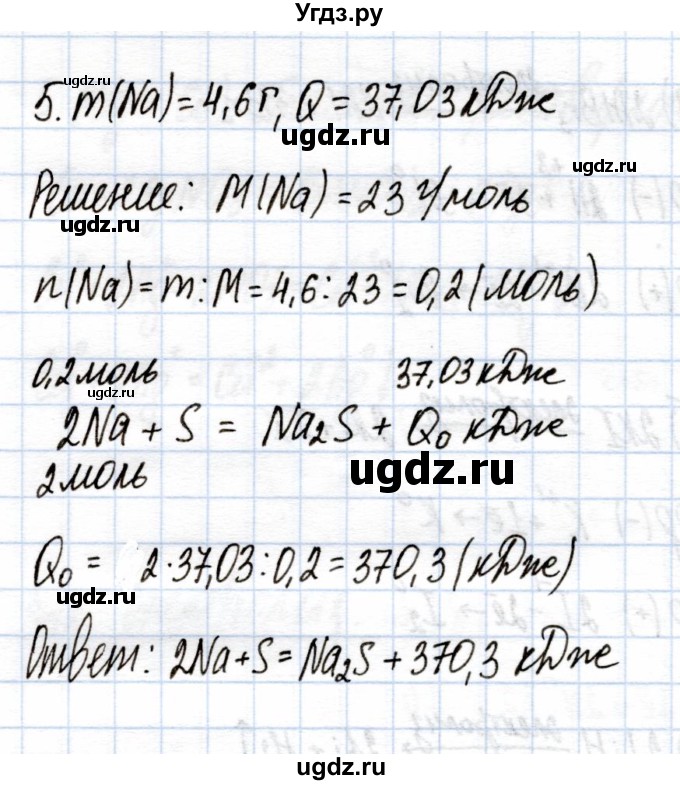 Угдз.ру
ugdz.ru
5. m(Na) = 4,6 г, Q = 37,03 кДж
ugdz.ru
ugdz.ru
Решение: M(Na) = 23 г/моль
ugdz.ru
n(Na) = m : M = 4,6 : 23 = 0,2 (моль)
0,2 моль 37,03 кДж
ugdz.ru
2Na + S = Na₂S + Q₀ кДж
ugdz.ru
2 моль
Q₀ = 2·37,03 : 0,2 = 370,3 (кДж)
ugdz.ru
Ответ: 2Na + S = Na₂S + 370,3 кДж
ugdz.ru
ugdz.ru